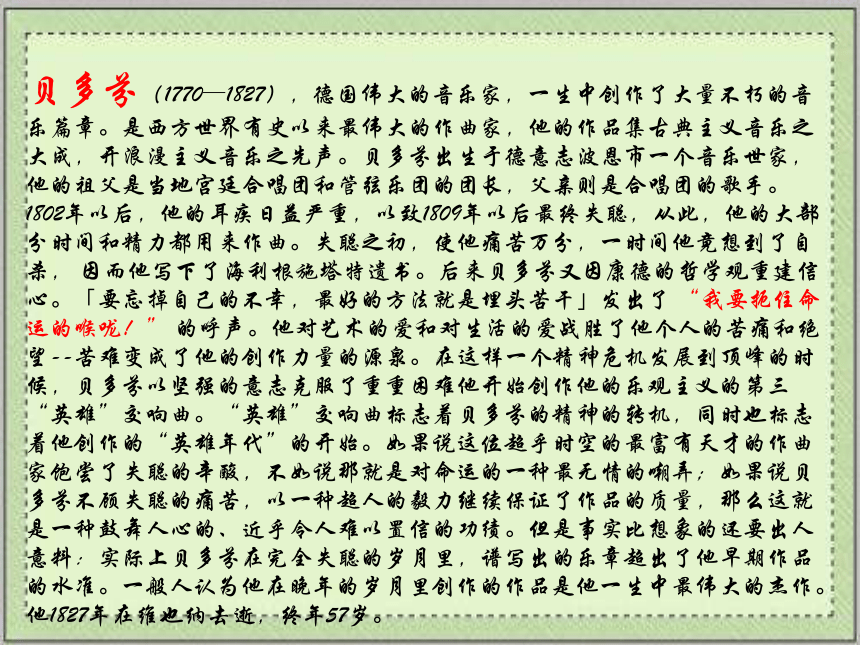 贝多芬（1770—1827），德国伟大的音乐家，一生中创作了大量不朽的音
乐篇章。是西方世界有史以来最伟大的作曲家，他的作品集古典主义音乐之
大成，开浪漫主义音乐之先声。贝多芬出生于德意志波恩市一个音乐世家，
他的祖父是当地宫廷合唱团和管弦乐团的团长，父亲则是合唱团的歌手。
1802年以后，他的耳疾日益严重，以致1809年以后最终失聪，从此，他的大部
分时间和精力都用来作曲。失聪之初，使他痛苦万分，一时间他竟想到了自
杀， 因而他写下了海利根施塔特遗书。后来贝多芬又因康德的哲学观重建信
心。「要忘掉自己的不幸，最好的方法就是埋头苦干」发出了 “我要扼住命
运的喉咙！” 的呼声。他对艺术的爱和对生活的爱战胜了他个人的苦痛和绝
望--苦难变成了他的创作力量的源泉。在这样一个精神危机发展到顶峰的时
候，贝多芬以坚强的意志克服了重重困难他开始创作他的乐观主义的第三
“英雄”交响曲。“英雄”交响曲标志着贝多芬的精神的转机，同时也标志
着他创作的“英雄年代”的开始。如果说这位超乎时空的最富有天才的作曲
家饱尝了失聪的辛酸，不如说那就是对命运的一种最无情的嘲弄；如果说贝
多芬不顾失聪的痛苦，以一种超人的毅力继续保证了作品的质量，那么这就
是一种鼓舞人心的、近乎令人难以置信的功绩。但是事实比想象的还要出人
意料：实际上贝多芬在完全失聪的岁月里，谱写出的乐章超出了他早期作品
的水准。一般人认为他在晚年的岁月里创作的作品是他一生中最伟大的杰作。
他1827年在维也纳去逝，终年57岁。